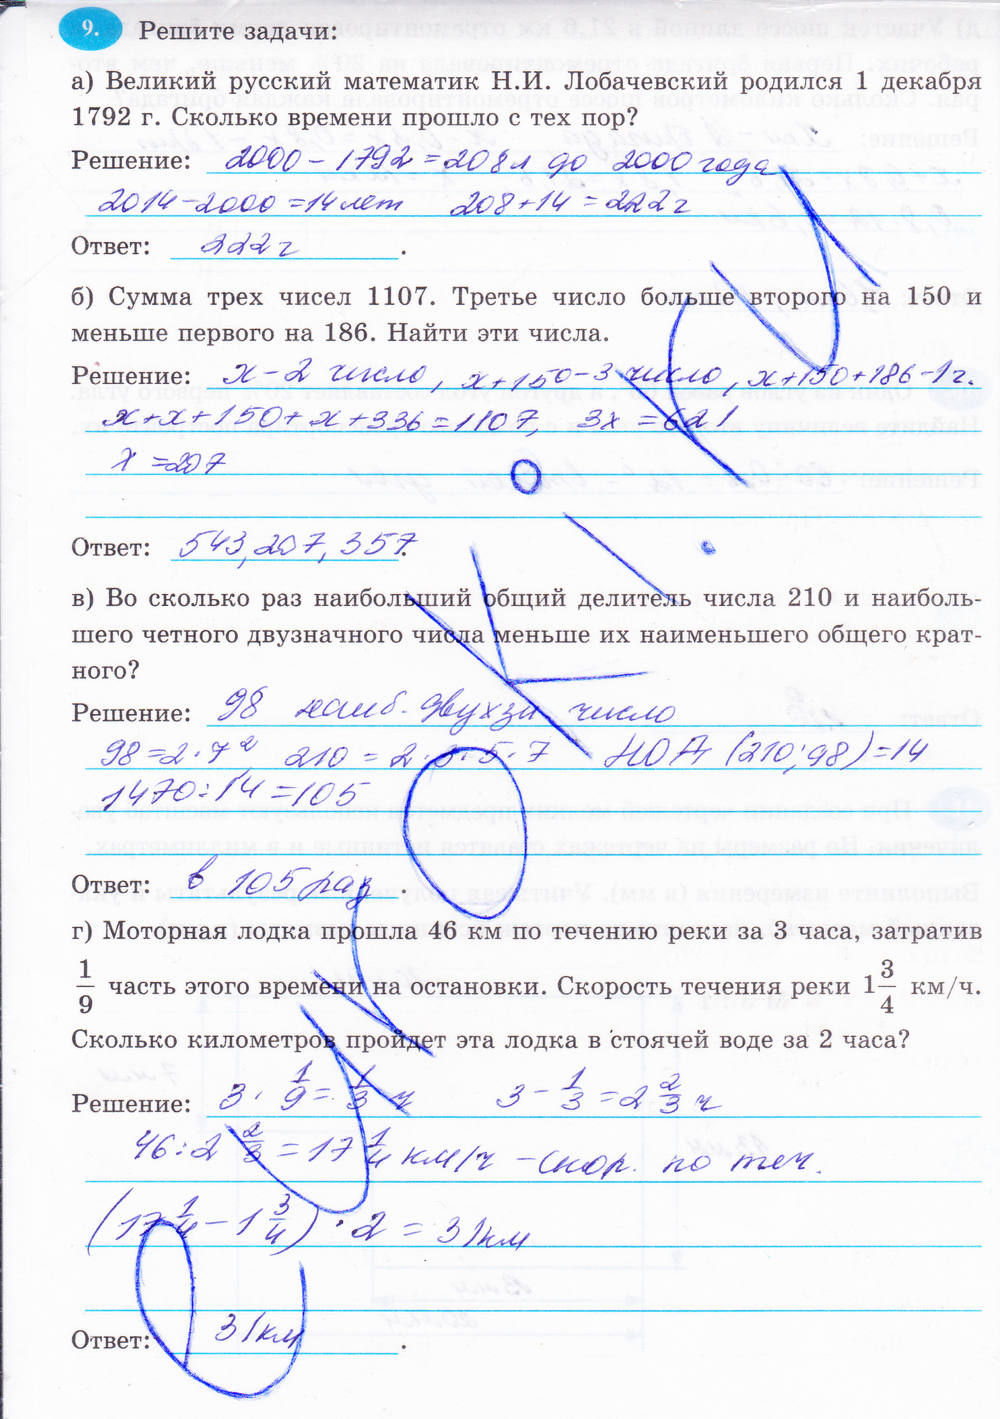 9. Решите задачи:
а) Великий русский математик Н.И. Лобачевский родился 1 декабря
1792 г. Сколько времени прошло с тех пор?
Решение: 2000 - 1792 = 208 л до 2000 года
2014 - 2000 = 14 лет 208 + 14 = 222 г
Ответ: 222 г .
б) Сумма трех чисел 1107. Третье число больше второго на 150 и
меньше первого на 186. Найти эти числа.
Решение: x - 2 число, x + 150 - 3 число, x + 150 + 186 - 1 ч.
x + x + 150 + x + 336 = 1107, 3x = 621
x = 207
Ответ: 543, 207, 357.
в) Во сколько раз наибольший общий делитель числа 210 и наиболь-
шего четного двузначного числа меньше их наименьшего общего крат-
ного?
Решение: 98 наиб. двухзн. число
98 = 2 · 7² 210 = 2 · 3 · 5 · 7 НОД (210; 98) = 14
1470 : 14 = 105
Ответ: в 105 раз .
г) Моторная лодка прошла 46 км по течению реки за 3 часа, затратив
1/9 часть этого времени на остановки. Скорость течения реки 1 3/4 км/ч.
Сколько километров пройдет эта лодка в стоячей воде за 2 часа?
Решение: 3 · 1/9 = 1/3 ч 3 - 1/3 = 2 2/3 ч
46 : 2 2/3 = 17 1/4 км/ч - скор. по теч.
(17 1/4 - 1 3/4) · 2 = 31 км
Ответ: 31 км .